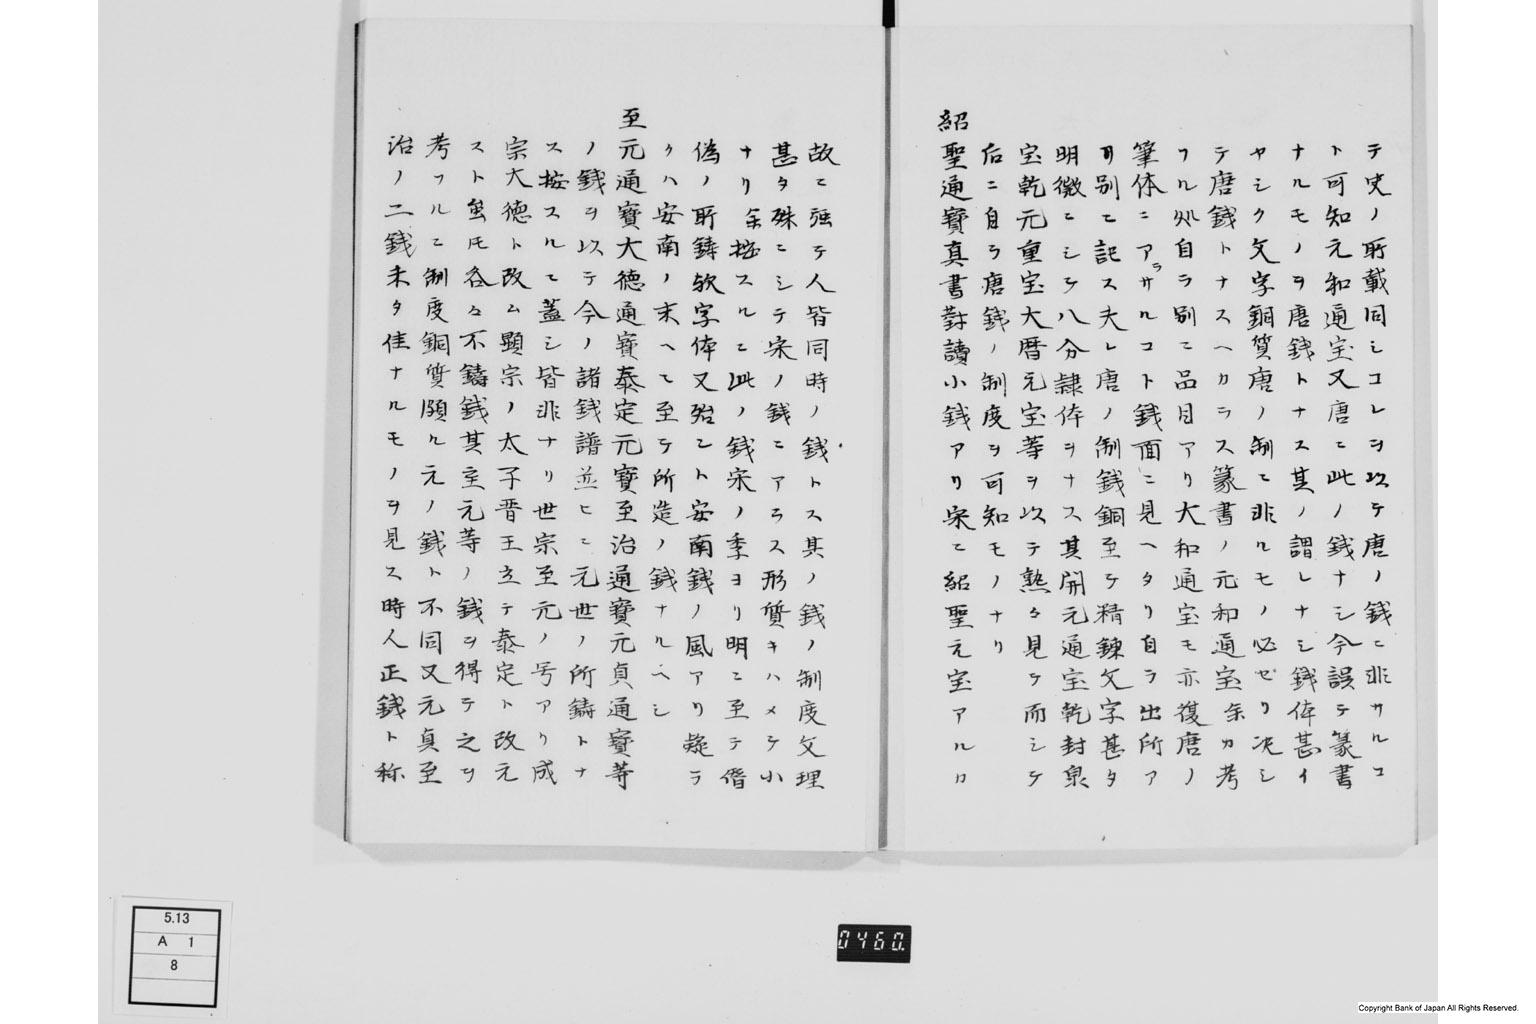 テ史ノ所載同シコレヲ以テ唐ノ銭ニ非サルコ
ト可知元和通宝又唐ニ此ノ銭ナシ今誤テ篆書
ナルモノヲ唐銭トナス其ノ謂レナシ銭体甚イ
ヤシク文字銅質唐ノ制ニ非ルモノ必ゼリ决シ
テ唐銭トナスヘカラス篆書ノ元和通宝余カ考
フル処自ラ別ニ品目アリ大和通宝モ亦復唐ノ
筆体ニアラサルコト銭面ニ見ヘタリ自ラ出所ア
リ別ニ記ス夫レ唐ノ制銭銅至テ精錬文字甚タ
明微ニシテ八分隷体ヲナス其開元通宝乾封泉
宝乾元重宝大暦元宝等ヲ以テ熟々見テ而シテ
后ニ自ラ唐銭ノ制度ヲ可知モノナリ
紹聖通寳真書對讀小銭アリ宋ニ紹聖元宝アルロ
故ニ強テ人皆同時ノ銭トス其ノ銭ノ制度文理
甚タ殊ニシテ宋ノ銭ニアラス形質キハメテ小
ナリ余按スルニ此ノ銭宋ノ季ヨリ明ニ至テ僭
偽ノ所鋳欤字体又殆ント安南銭ノ風アリ疑ラ
クハ安南ノ末ヘニ至テ所造ノ銭ナルヘシ
至元通寳大徳通寳泰定元寳至治通寳元貞通寳等
ノ銭ヲ以テ今ノ諸銭譜並ヒニ元世ノ所鋳トナ
ス按スルニ蓋シ皆非ナリ世宗至元ノ号アリ成
宗大徳ト改ム顕宗ノ太子晋王立テ泰定ト改元
スト虽モ各々不鑄銭其主元等ノ銭ヲ得テ之ヲ
考フルニ制度銅質頗ル元ノ銭ト不同又元貞至
治ノ二銭未タ佳ナルモノヲ見ス時人正銭ト称
5.13
A 1
8
0460.
Copyright Bank of Japan All Rights Reserved.